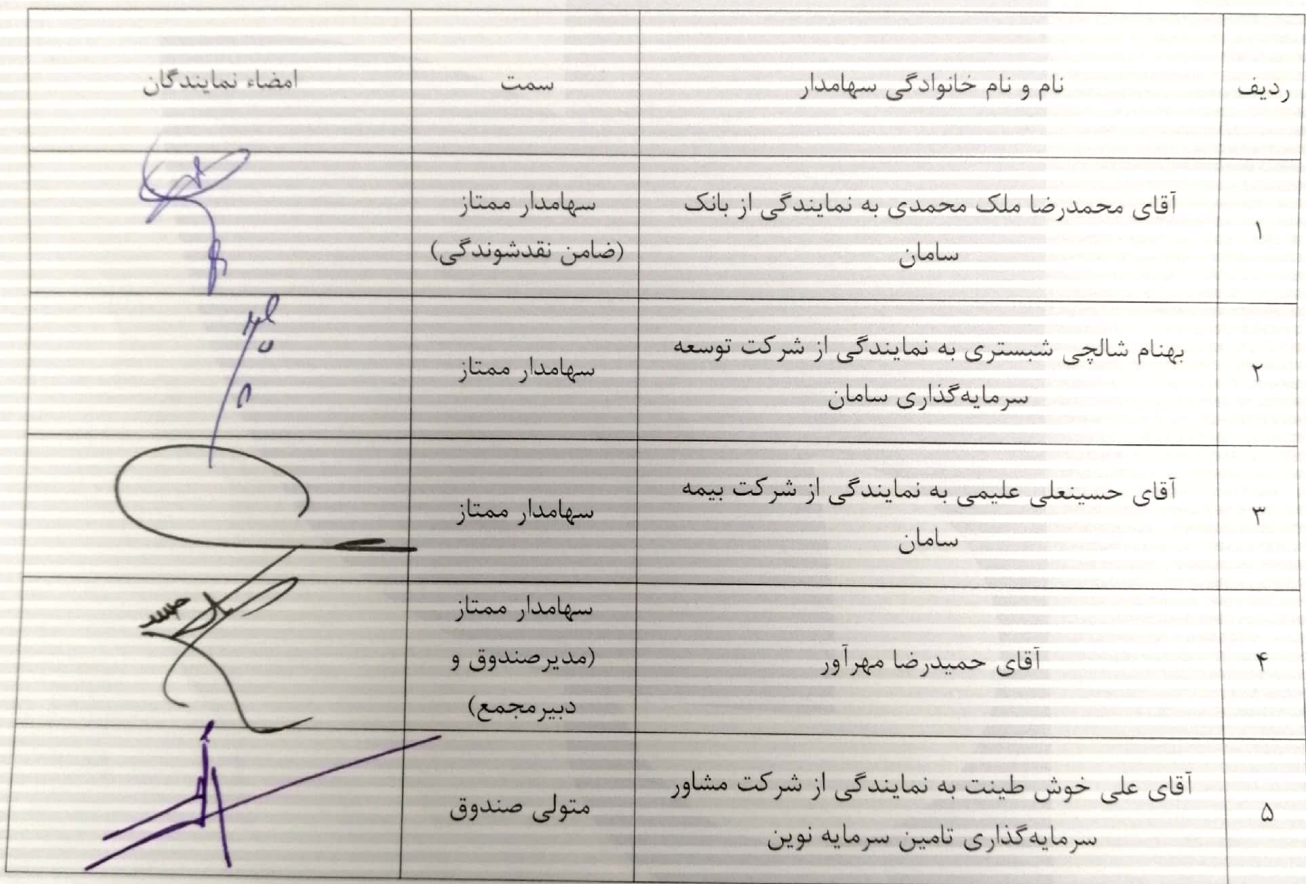 ردیف
نام و نام خانوادگی سهامدار
سمت
امضاء نمایندگان
۱
آقای محمدرضا ملک محمدی به نمایندگی از بانک
سامان
سهامدار ممتاز
(ضامن نقدشوندگی)
۲
بهنام شالچی شبستری به نمایندگی از شرکت توسعه
سرمایه‌گذاری سامان
سهامدار ممتاز
۳
آقای حسینعلی علیمی به نمایندگی از شرکت بیمه
سامان
سهامدار ممتاز
۴
آقای حمیدرضا مهرآور
سهامدار ممتاز
(مدیرصندوق و
دبیرمجمع)
۵
آقای علی خوش طینت به نمایندگی از شرکت مشاور
سرمایه‌گذاری تامین سرمایه نوین
متولی صندوق